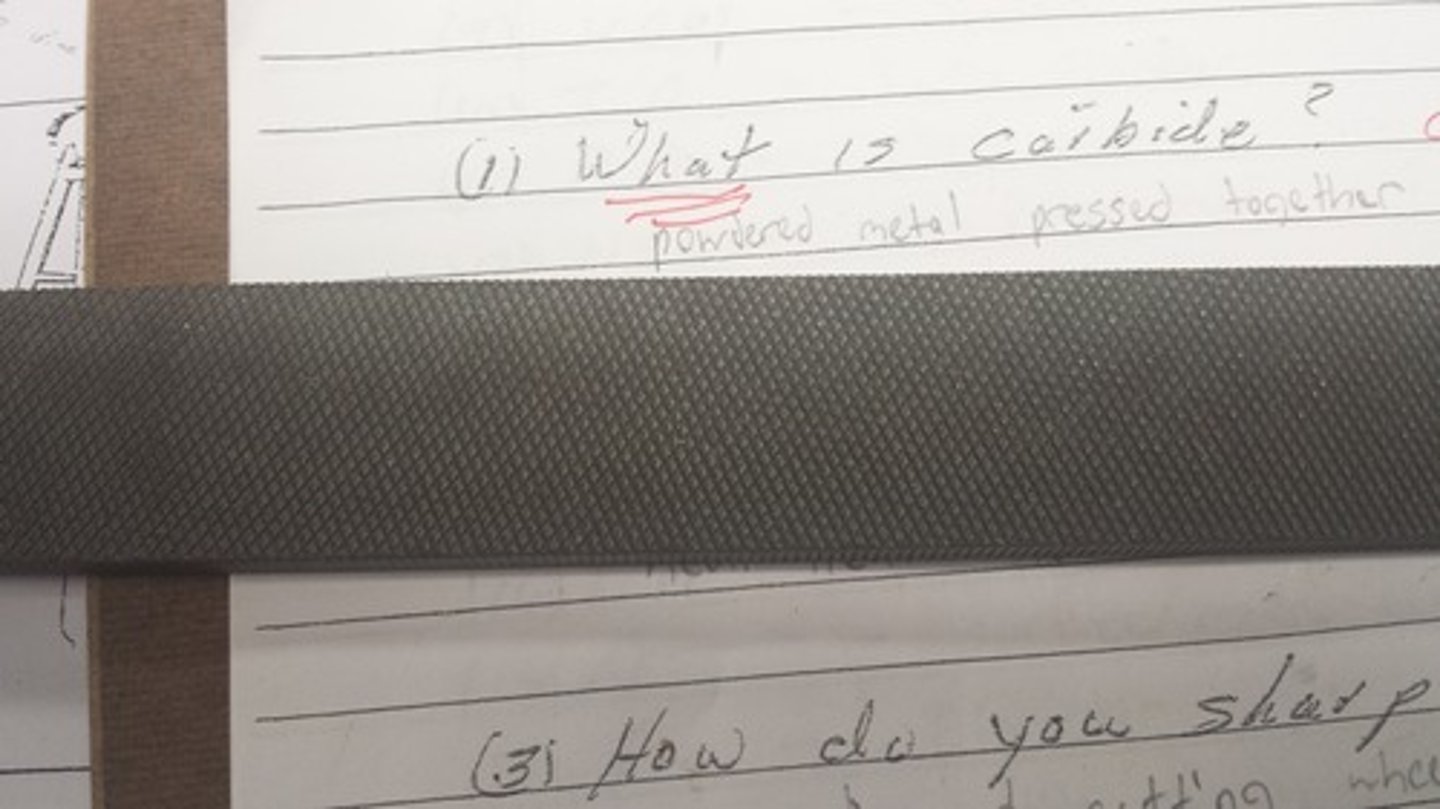 (1) What is carbide?
powdered metal pressed together
(3) How do you sharp
whee